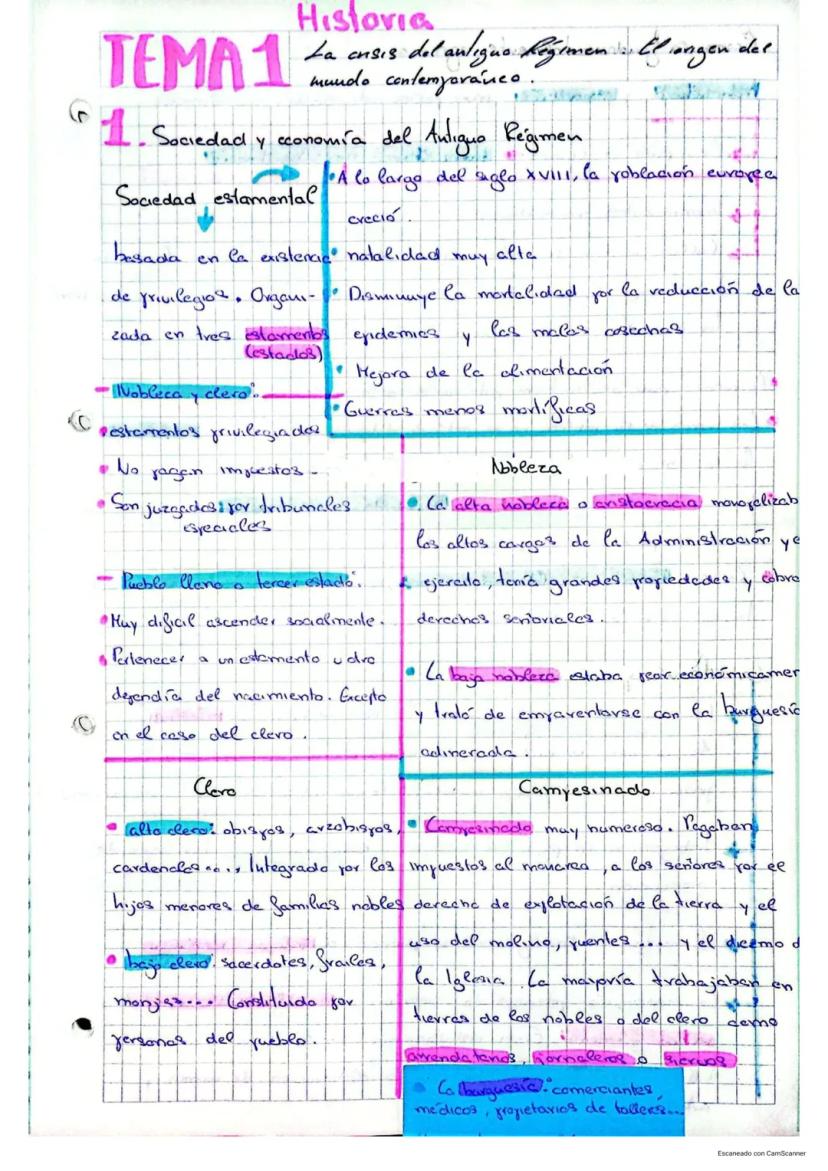 Historia
TEMA 1
La crisis del antiguo Régimen. El origen del
mundo contemporáneo.
1. Sociedad y economía del Antiguo Régimen
Sociedad estamental
basada en la existencia
de privilegios. Organi-
zada en tres estamentos
(estados)
- Nobleca y clero:
estamentos privilegiados
• No pagan impuestos -
• Son juzgados por tribunales
especiales
- Pueblo llano o tercer estado:
• Muy dificil ascender socialmente.
• Pertenecer a un estamento u otro
dependía del nacimiento. Excepto
en el caso del clero.
• A lo largo del siglo XVIII, la población europea
creció.
• natalidad muy alta
• Disminuye la mortalidad por la reducción de la
epidemias y las malas cosechas
• Mejora de la alimentación
• Guerras menos mortíficas
Nobleza
• La alta nobleca o aristocracia monopolizab
los altos cargos de la Administración y e
ejercito, tenía grandes propiedades y cobra
derechos señoriales.
• La baja nobleza estaba peor económicamer
y trató de emparentarse con la burguesía
adinerada.
Clero
• alto clero: obispos, arzobispos,
cardenales..., Integrado por los
hijos menores de familias nobles
• bajo clero: sacerdotes, frailes,
monjas... Constituido por
personas del pueblo.
Campesinado
• Campesinado muy numeroso. Pagaban
impuestos al monarca, a los señores por el
derecho de explotación de la tierra y el
uso del molino, puentes... y el diezmo d
la Iglesia. La mayoría trabajaban en
tierras de los nobles o del clero como
arrendatarios, jornaleros o siervos
• La burguesía: comerciantes,
médicos, propietarios de talleres...
Escaneado con CamScanner